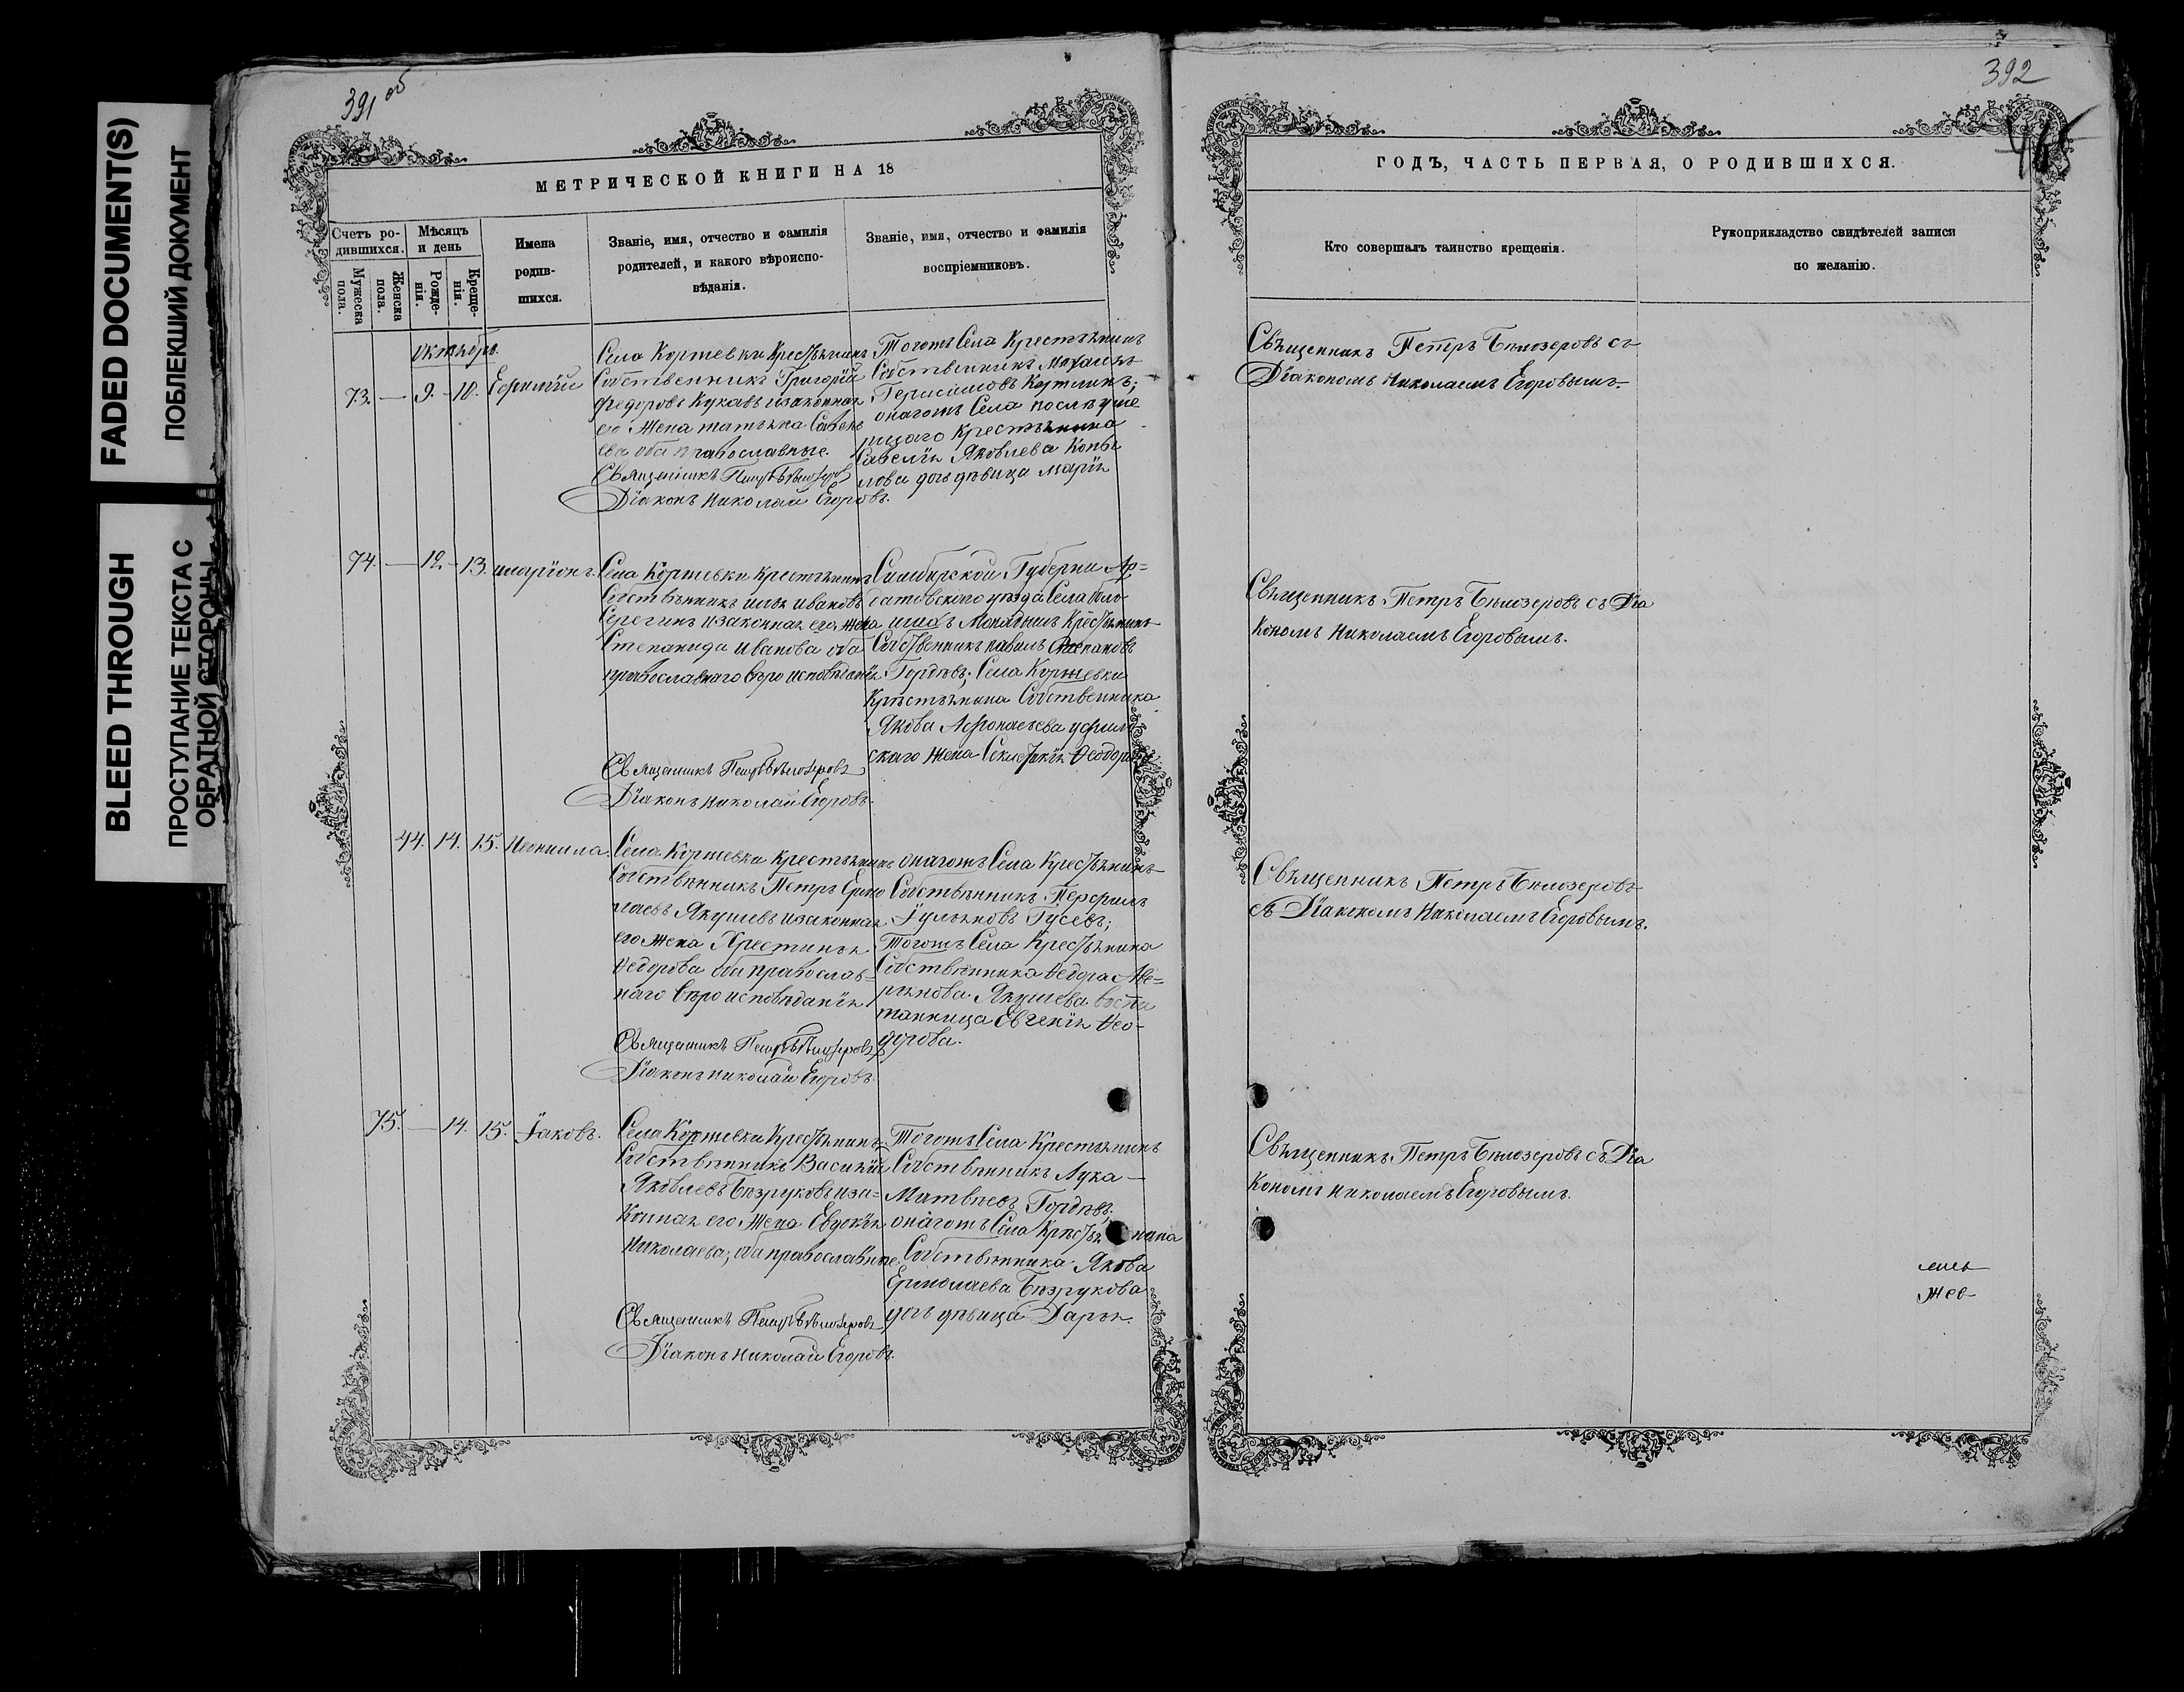 FADED DOCUMENT(S)
ПОБЛЕКШИЙ ДОКУМЕНТ
BLEED THROUGH
ПРОСТУПАНИЕ ТЕКСТА С
ОБРАТНОЙ СТОРОНЫ
391 об
МЕТРИЧЕСКОЙ КНИГИ НА 18
Счетъ ро-
дившихся.
Мужеска
пола.
Женска
пола.
Мѣсяцъ
и день
Рожде-
нія.
Креще-
нія.
Имена
родив-
шихся.
Званіе, имя, отчество и фамилія
родителей, и какого вѣроиспо-
вѣданія.
Званіе, имя, отчество и фамилія
воспріемниковъ.
Октябрь.
73. — 9. 10.
Села Коржевки Крестьянинъ
Собственникъ Григорій
Федоровъ Кукавъ изаконная
его Жена татьяна Савель
ева оба православные.
Священникъ Петръ Бѣлозеровъ
Діаконъ Николай Егоровъ.
Тогожъ Села Крестьянинъ
Собственникъ Михаилъ
Герасимовъ
онагожъ Села послѣ уме
ршаго Крестьянина
Савелія Яковлева Копы
лова дочь дѣвица Марія
74. — 12. 13. иларіонъ.
Села Коржевки Крестьянинъ
Собственникъ илья ивановъ
Серегинъ изаконная его Жена
Степанида иванова оба
православнаго вѣроисповѣданія
Священникъ Петръ Бѣлозеровъ
Діаконъ Николай Егоровъ.
Симбирской Губерни Ар=
датовскаго уѣзда Села боль
шихъ Монадышъ Крестьянинъ
Собственникъ павилъ Степановъ
Гордѣвъ; Села Коржевки
Крѣстьянина Собственника
Якова
скаго Жена Феодорова
44. 14. 15. Неонила.
Села Коржевки Крестьянинъ
Собственникъ Петръ Ермо
лаевъ Якушевъ изаконная
его Жена Христинья
Федорова оба православ=
наго вѣроисповѣданія
Священникъ Петръ Бѣлозеровъ
Діаконъ николай Егоровъ.
онагожъ Села Крестьянинъ
Собственникъ Перфилъ
Гусевъ;
Тогожъ Села Крестьянина
Собственника Федора Аве=
рьянова Якушева воспи
танница Евгенія Фео-
дорова.
75. — 14. 15. Іаковъ.
Села Коржевки Крестьянинъ
Собственникъ Василій
Яковлевъ Безруковъ иза=
конная его Жена Евдокія
Николаева; оба православные.
Священникъ Петръ Бѣлозеровъ
Діаконъ николай Егоровъ.
Тогожъ Села Крестьянинъ
Собственникъ Лука
Матвѣевъ Гордѣвъ;
онагожъ Села Крестьянина
Собственника Якова
Ермолаева Безрукова
дочь дѣвица Дарья.
392
ГОДЪ, ЧАСТЬ ПЕРВАЯ, О РОДИВШИХСЯ.
Кто совершалъ таинство крещенія.
Рукоприкладство свидѣтелей записи
по желанію.
Свѣщенникъ Петръ Бѣлозеровъ съ
Діакономъ Николаемъ Егоровымъ.
Свѣщенникъ Петръ Бѣлозеровъ съ Діа
кономъ Николаемъ Егоровымъ.
Свѣщенникъ Петръ Бѣлозеровъ
съ Діакономъ Николаемъ Егоровымъ.
Свѣщенникъ Петръ Бѣлозеровъ съ Діа
кономъ николаемъ Егоровымъ.